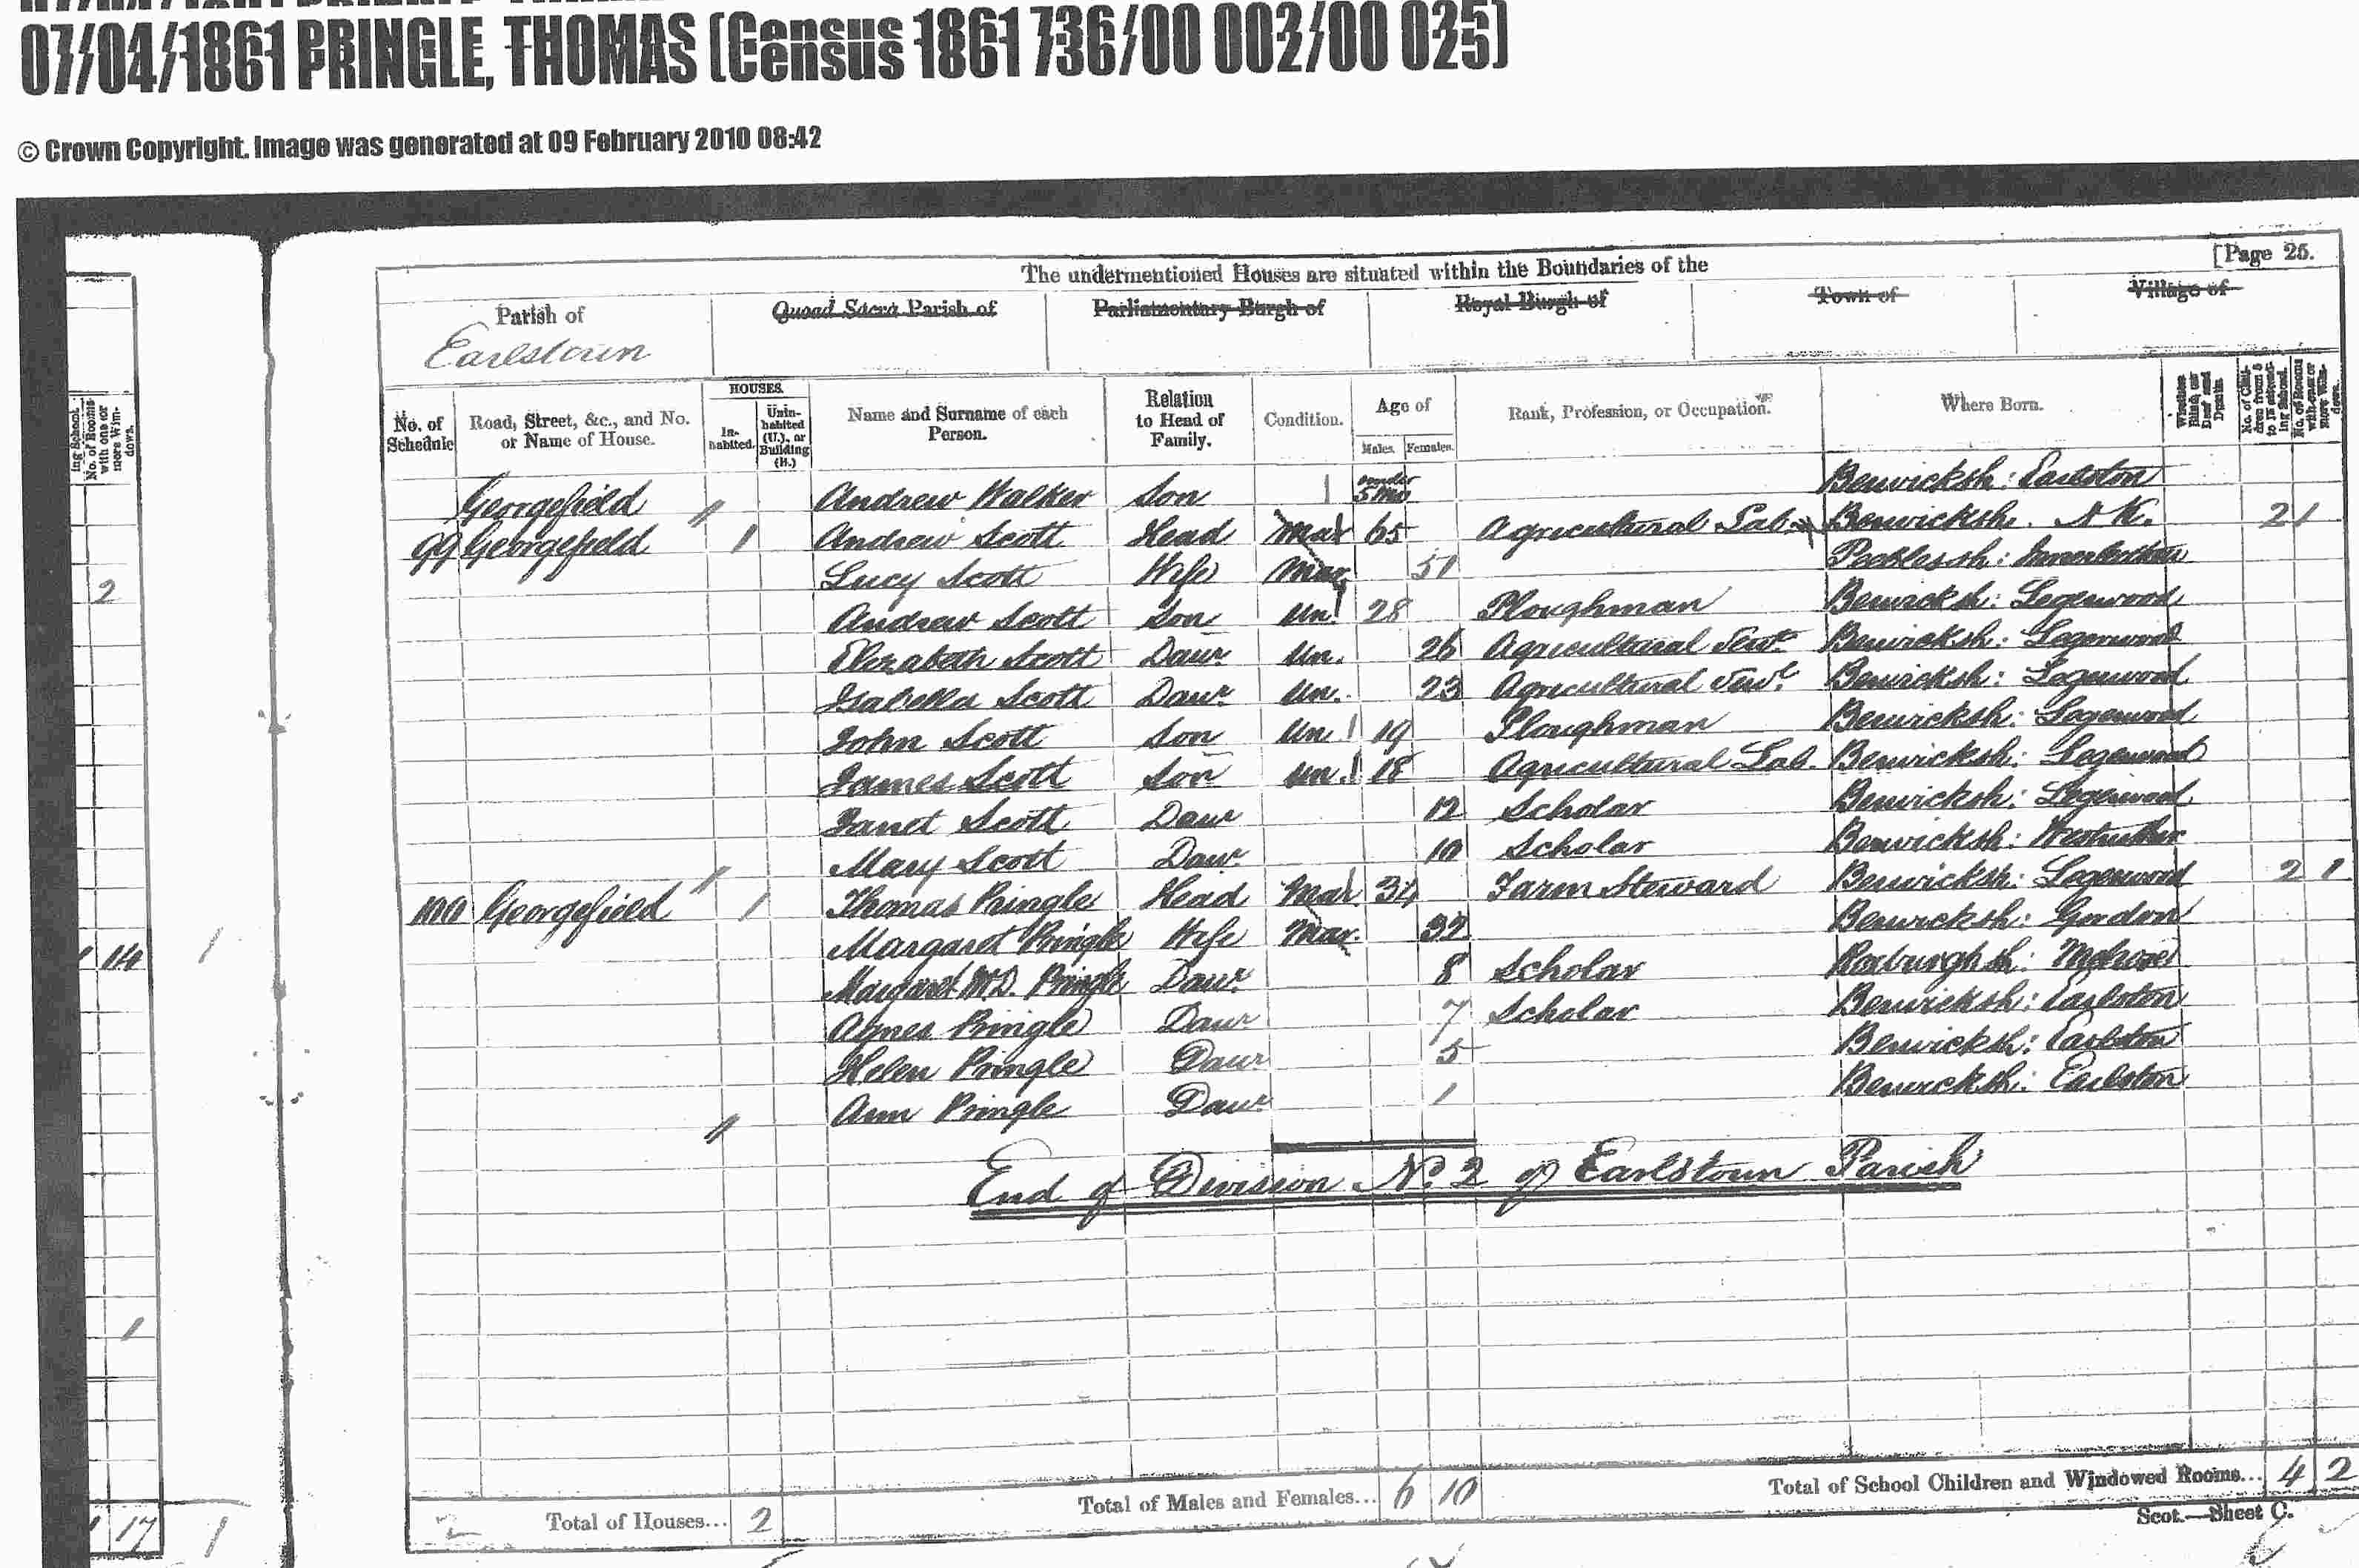 07/04/1861 PRINGLE, THOMAS (Census 1861 736/00 002/00 025)
© Crown Copyright. Image was generated at 09 February 2010 08:42
[Page 25.
The undermentioned Houses are situated within the Boundaries of the
Parish of Quoad Sacra Parish of Parliamentary Burgh of Royal Burgh of Town of Village of
Earlstoun
No. of Schedule Road, Street, &c., and No. or Name of House. HOUSES. Inhabited. Uninhabited (U.), or Building (B.) Name and Surname of each Person. Relation to Head of Family. Condition. Age of Males. Females. Rank, Profession, or Occupation. Where Born. Whether Blind, or Deaf and Dumb. No. of Children from 5 to 15 attending School. No. of Rooms with one or more Windows.
Georgefield Andrew Walker Son under 5 Mo Berwicksh: Earlston
99 Georgefield 1 Andrew Scott Head Mar 65 Agricultural Lab. Berwicksh. N K. 2 1
Lucy Scott Wife Mar 51 Peeblessh: Innerleithen
Andrew Scott Son Un 28 Ploughman Berwicksh: Legerwood
Elizabeth Scott Daur. Un. 26 Agricultural Servt. Berwicksh: Legerwood
Isabella Scott Daur. Un. 23 Agricultural Servt. Berwicksh: Legerwood
John Scott Son Un. 19 Ploughman Berwicksh: Legerwood
James Scott Son Un. 18 Agricultural Lab. Berwicksh: Legerwood
Janet Scott Daur 12 Scholar Berwicksh: Legerwood
Mary Scott Daur. 10 Scholar Berwicksh: Westruther
100 Georgefield 1 Thomas Pringle Head Mar. 34 Farm Steward Berwicksh: Legerwood 2 1
Margaret Pringle Wife Mar. 32 Berwicksh: Gordon
Margaret McD. Pringle Daur. 8 Scholar Roxburghsh: Melrose
Agnes Pringle Daur 7 Scholar Berwicksh: Earlston
Helen Pringle Daur 5 Berwicksh: Earlston
Ann Pringle Daur. 1 Berwicksh: Earlston
End of Division No. 2 of Earlstoun Parish
Total of Houses... 2 Total of Males and Females... 6 10 Total of School Children and Windowed Rooms... 4 2
Scot.—Sheet C.
ing School.
No. of Rooms with one or more Windows.
2
1 14
1
1
1 17
1